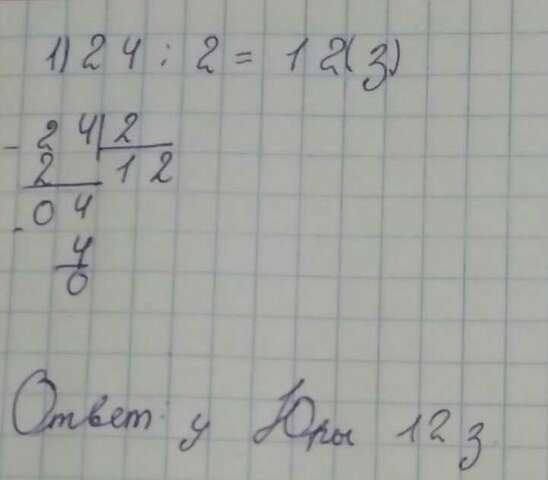 1) 24 : 2 = 12(з)
- 24 2
2 12
- 04
4
0
Ответ: у Юры 12 з